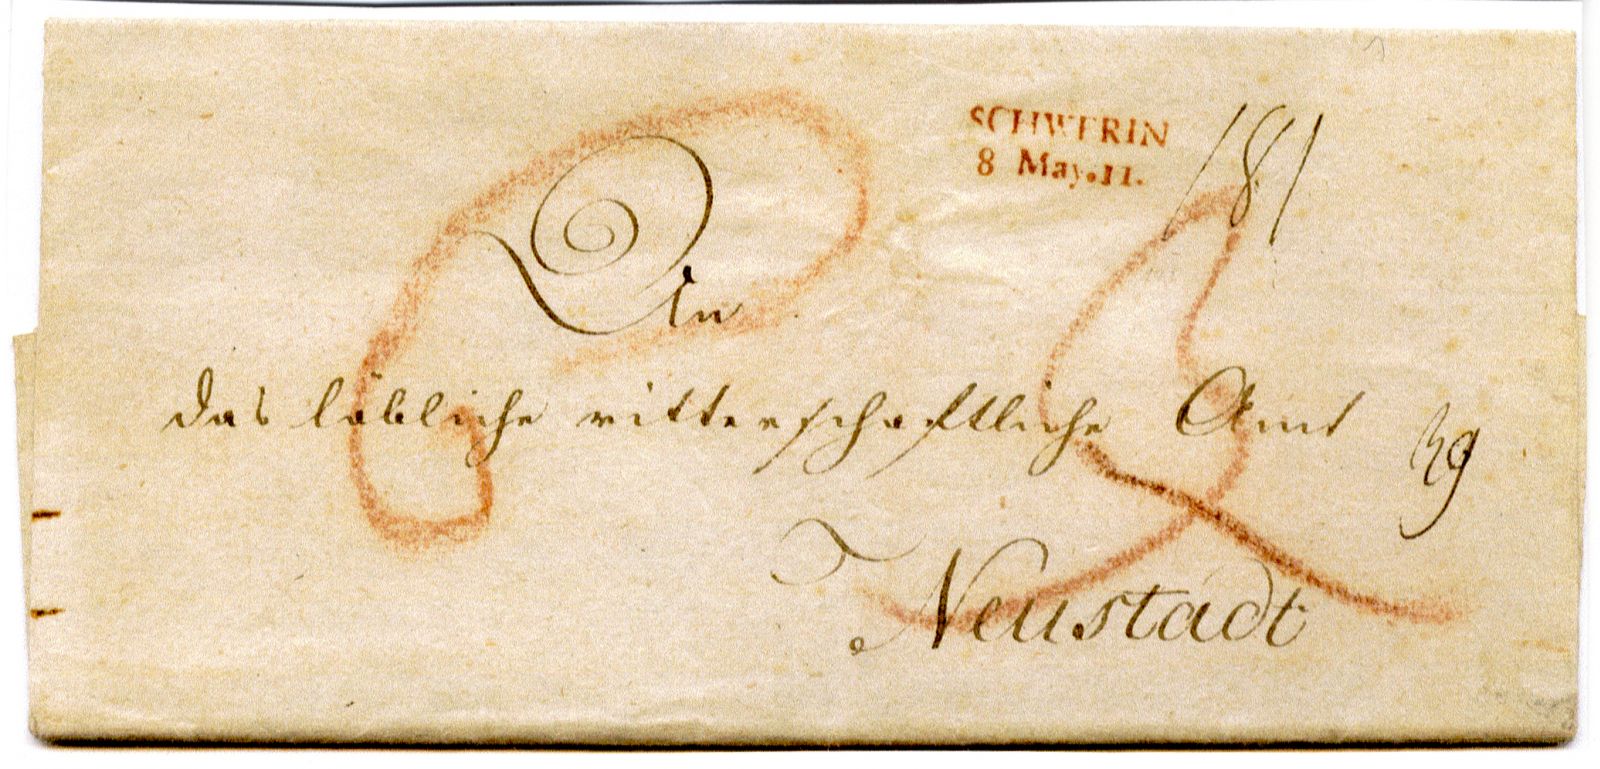 SCHWERIN
8 May.11.
181
An
das löbliche ritterschaftliche Amt
Neustadt